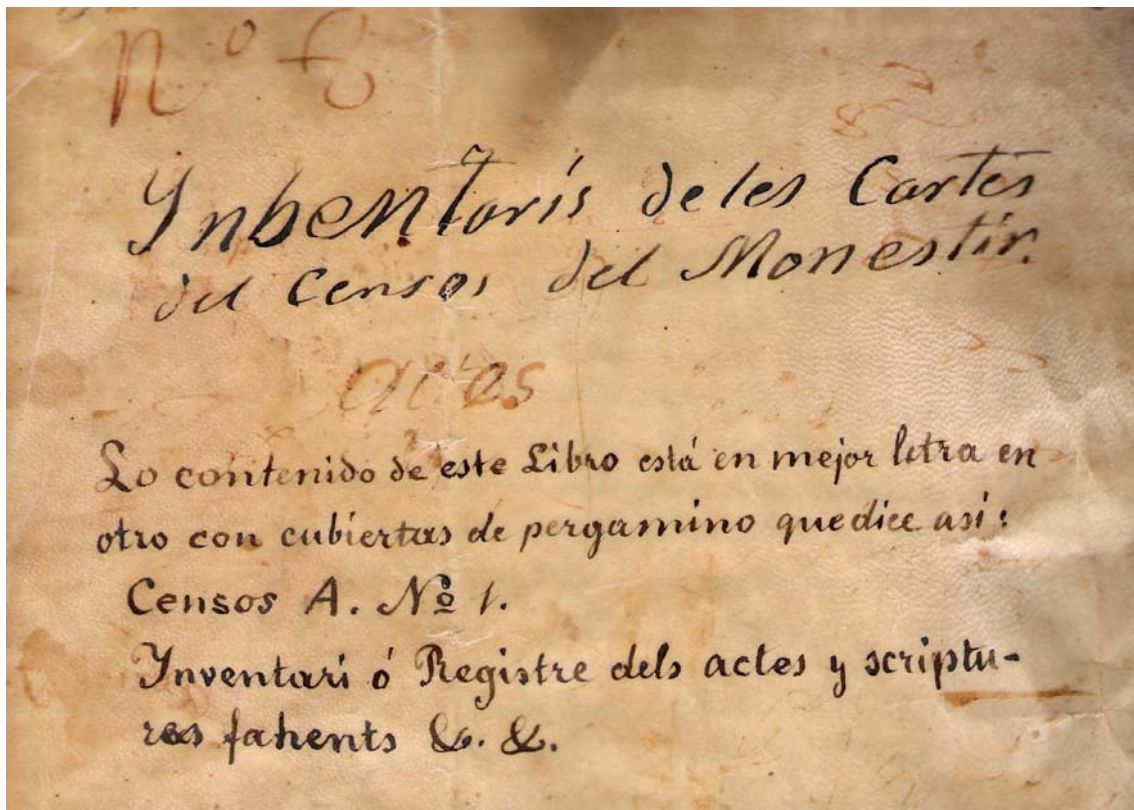 Nº 6
Ynbentaris de les Cartes
del Censos del Monestir.
Lo contenido de este Libro está en mejor letra en
otro con cubiertas de pergamino que dice asi:
Censos A. Nº 1.
Ynventari ó Registre dels actes y scriptu-
res fahents &. &.